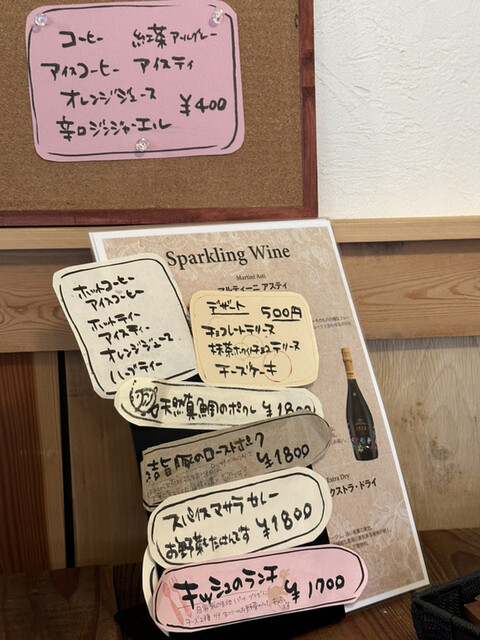 コーヒー 紅茶アールグレー
アイスコーヒー アイスティ
オレンジジュース ¥400
辛口ジンジャーエル
Sparkling Wine
Martini Asti
マルティーニ アスティ
ホットコーヒー
アイスコーヒー
ホットティー
アイスティー
オレンジジュース
ハーブティー
デザート 500円
チョコレートテリーヌ
抹茶ホワイトチョコテリーヌ
チーズケーキ
天然真鯛のポワレ ¥1800
豚のローストポーク
¥1800
Extra Dry
エクストラ・ドライ
スパイスマサラカレー
お野菜たっぷりです ¥1800
キッシュのランチ
¥1700